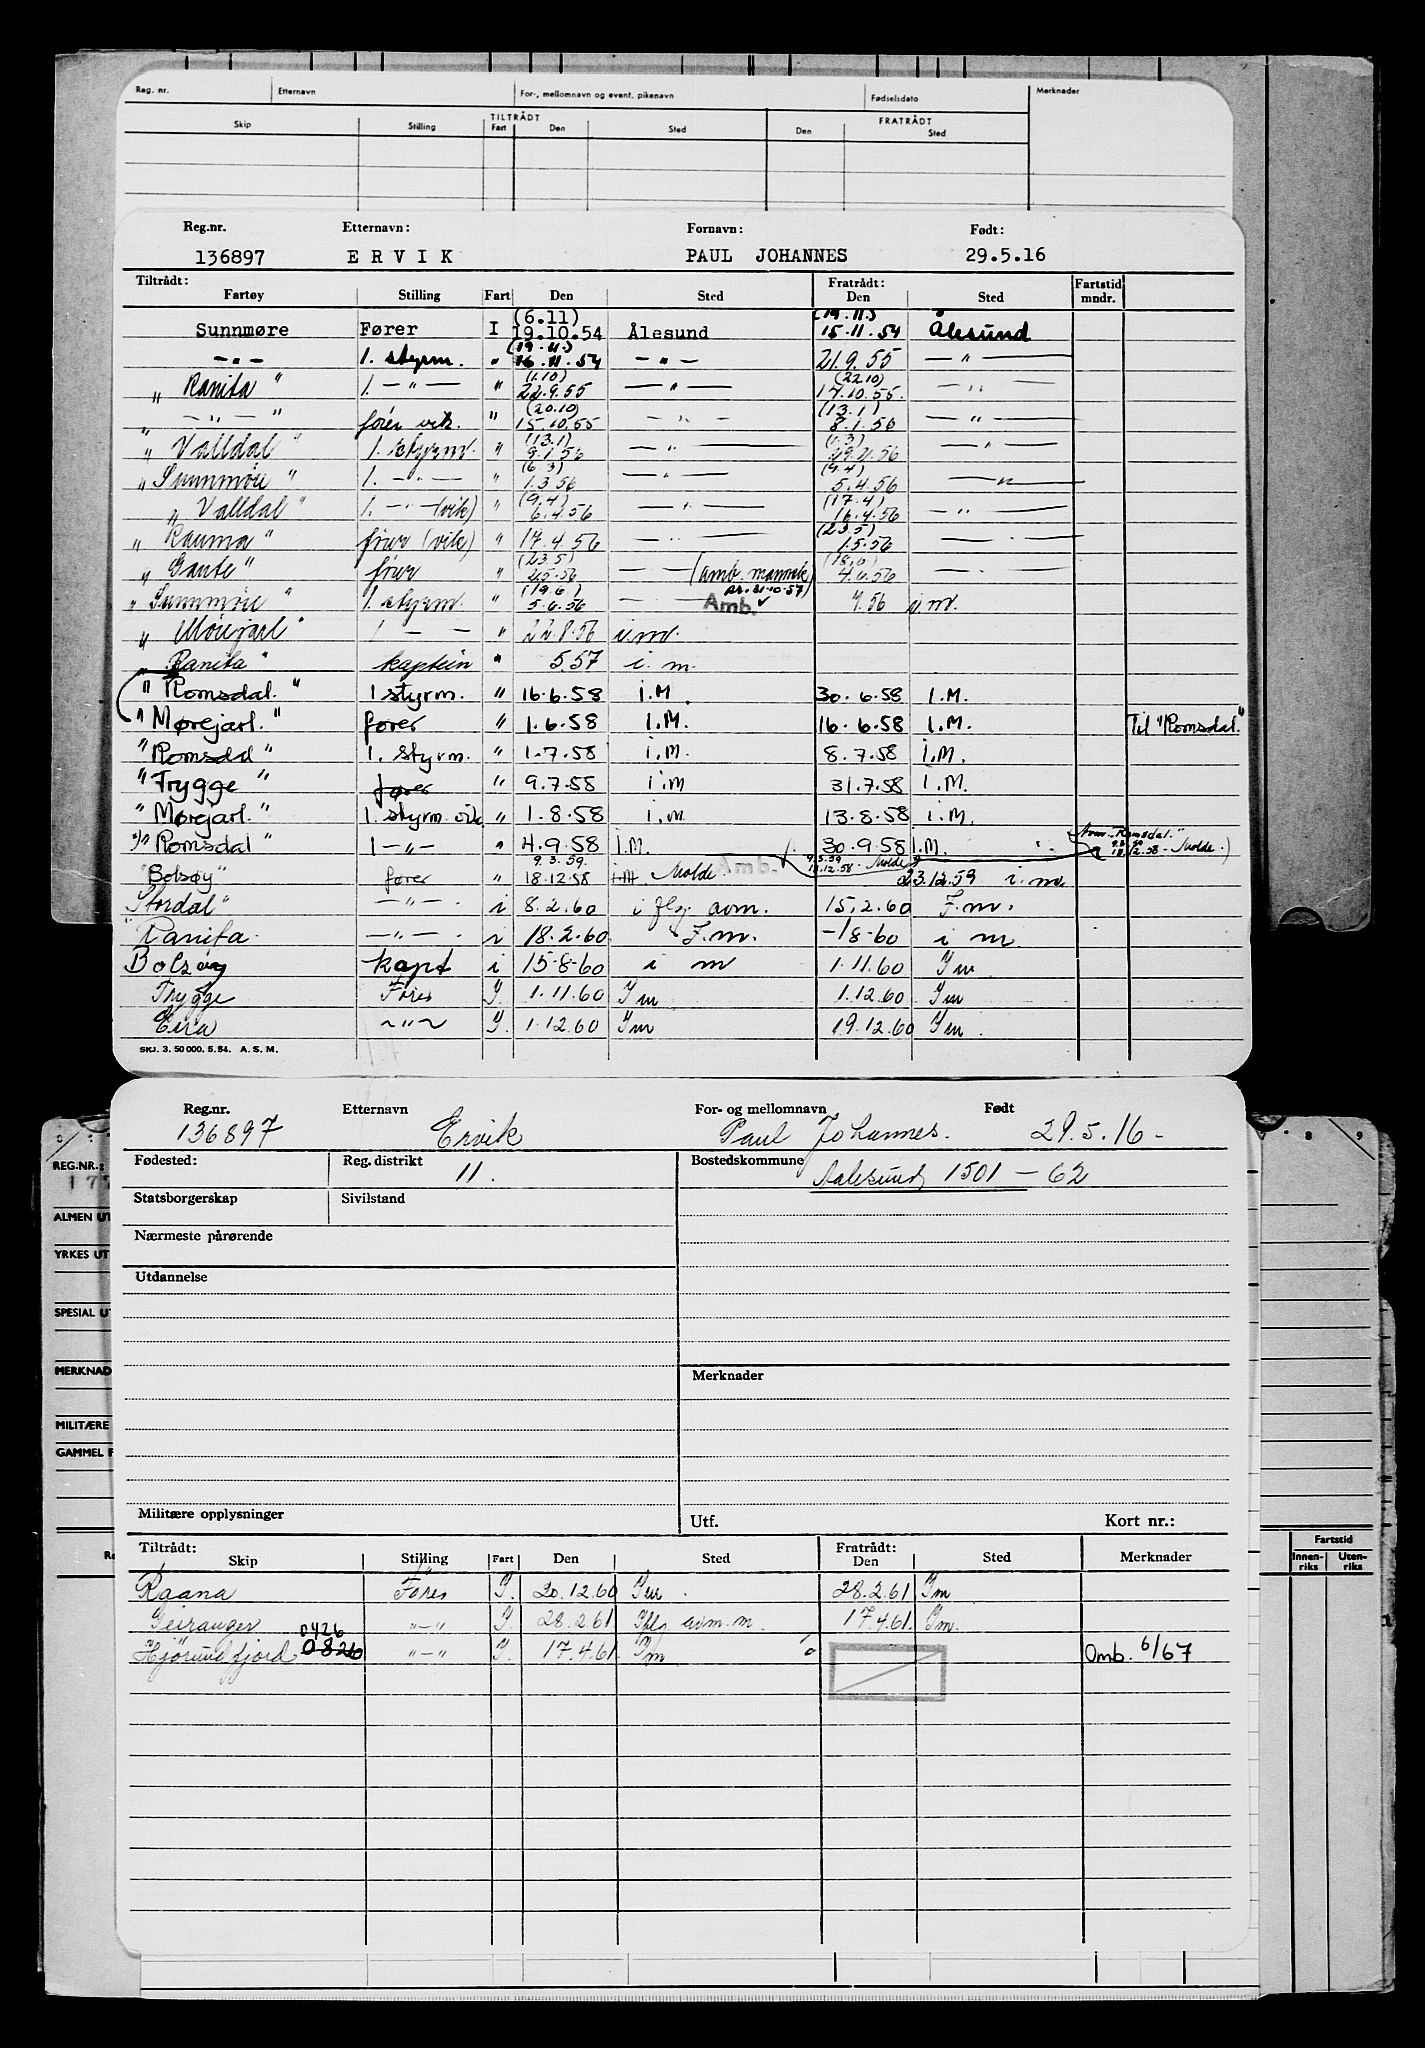 Reg. nr. Etternavn For-, mellomnavn og event. pikenavn Fødselsdato Merknader
TILTRÅDT FRATRÅDT
Skip Stilling Fart Den Sted Den Sted
Reg.nr. Etternavn: Fornavn: Født:
136897 ERVIK PAUL JOHANNES 29.5.16
Tiltrådt: Fratrådt: Fartstid
Fartøy Stilling Fart Den Sted Den Sted mndr.
(6.11) (19.11.)
Sunnmøre Fører I 19.10.54 Ålesund 15.11.54 Ålesund
(19.11.)
—"— 1. styrm. " 16.11.54 —"— 21.9.55 —"—
(1.10) (22.10)
"Ranita" 1. —"— " 22.9.55 —"— 17.10.55. —"—
(20.10) (13.1)
"—"—" fører vik. " 15.10.55 —"— 8.1.56 —"—
(13.1) (1.3)
"Valldal" 1. styrm. " 9.1.56 —"— 29.2.56 —"—
(6.3) (9.4)
"Sunnmøre" 1. —"— " 1.3.56 —"— 5.4.56 —"—
(9.4) (17.4)
"Valldal" 1. —"— (vik) " 6.4.56 —"— 16.4.56 —"—
(23.5)
"Rauma" fører (vik) " 17.4.56 —"— 1.5.56 —"—
(23.5)
"Gante" fører " 2.5.56 — (amb. mannsk. 4.6.56 —"—
(19.6) pr. 31.10.57)
"Sunnmøre" 1. styrm. " 5.6.56 — Amb. 7.56 i.m.
"Mørejarl" 1 — — " 22.8.56 i.m.
"Ranita" kaptein " 5.57 i.m.
"Romsdal." 1 styrm. " 16.6.58 I.M. 30.6.58 I.M.
"Mørejarl." fører " 1.6.58 I.M. 16.6.58 I.M. Til "Romsdal."
"Romsdal" 1. styrm. " 1.7.58 i.M. 8.7.58 i.M.
"Trygge" fører " 9.7.58 i.M 31.7.58 I.M.
"Mørejarl." 1. styrm. vik. " 1.8.58 i.M 13.8.58 I.M.
"Romsdal" 1 —"— " 4.9.58 I.M. 30.9.58 I.M. "Romsdal." 18.12.58 - Molde.)
9.3.59. Amb. 9.3.59 18.12.58 - Molde
"Bolsøy" fører " 18.12.58 i.M. Molde 23.12.59 i.m.
Stordal" —"— i 8.2.60 i flg. avm. 15.2.60 F.m.
"Ranita. —"— i 18.2.60 F.m. -18-60 i m
Bolsøy kapt i 15-8-60 i m 1.11.60 I m
Trygge Fører I. 1.11.60 I m 1.12.60 I m
Eira —"— I. 1.12.60 I m 19.12.60 I m.
SKJ. 3. 50 000. 5. 54. A. S. M.
Reg.nr. Etternavn For- og mellomnavn Født
136897 Ervik Paul Johannes. 29.5.16-
Fødested: Reg. distrikt 11. Bostedskommune Aalesund 1501 — 62
Statsborgerskap Sivilstand
Nærmeste pårørende
Utdannelse
Merknader
Militære opplysninger Utf. Kort nr.:
Tiltrådt: Fratrådt:
Skip Stilling Fart Den Sted Den Sted Merknader
Raana Fører I. 20.12.60 I m. 28.2.61 I m
Geiranger —"— I. 28.2.61 Iflg avm. m. 17.4.61 I m.
0426
Hjørundfjord 0820 —"— I. 17.4.61. I m Omb. 6/67
REG.NR.:
ALMEN UT
YRKES UT
SPESIAL UT
MERKNAD
MILITÆRE
GAMMEL F
8 9
Fartstid
Innenriks Utenriks